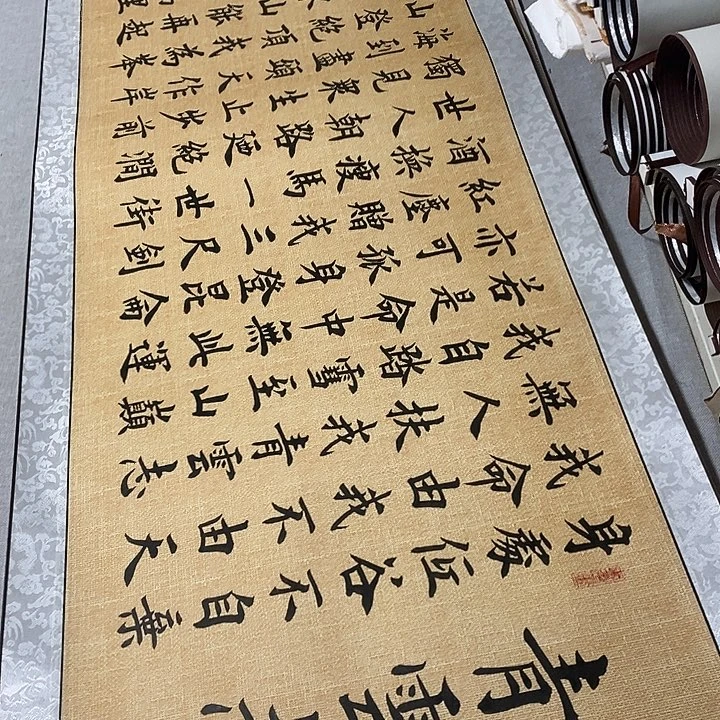 青雲志
身處低谷不自棄
我命由我不由天
無人扶我青雲志
我自踏雪至山巔
若是命中無此運
亦可孤身登昆侖
紅塵贈我三尺劍
酒瘦馬一世街
世人朝路絕澗
獨見眾生止步前
海到盡頭天作岸
山登絕頂我為峯
山能再